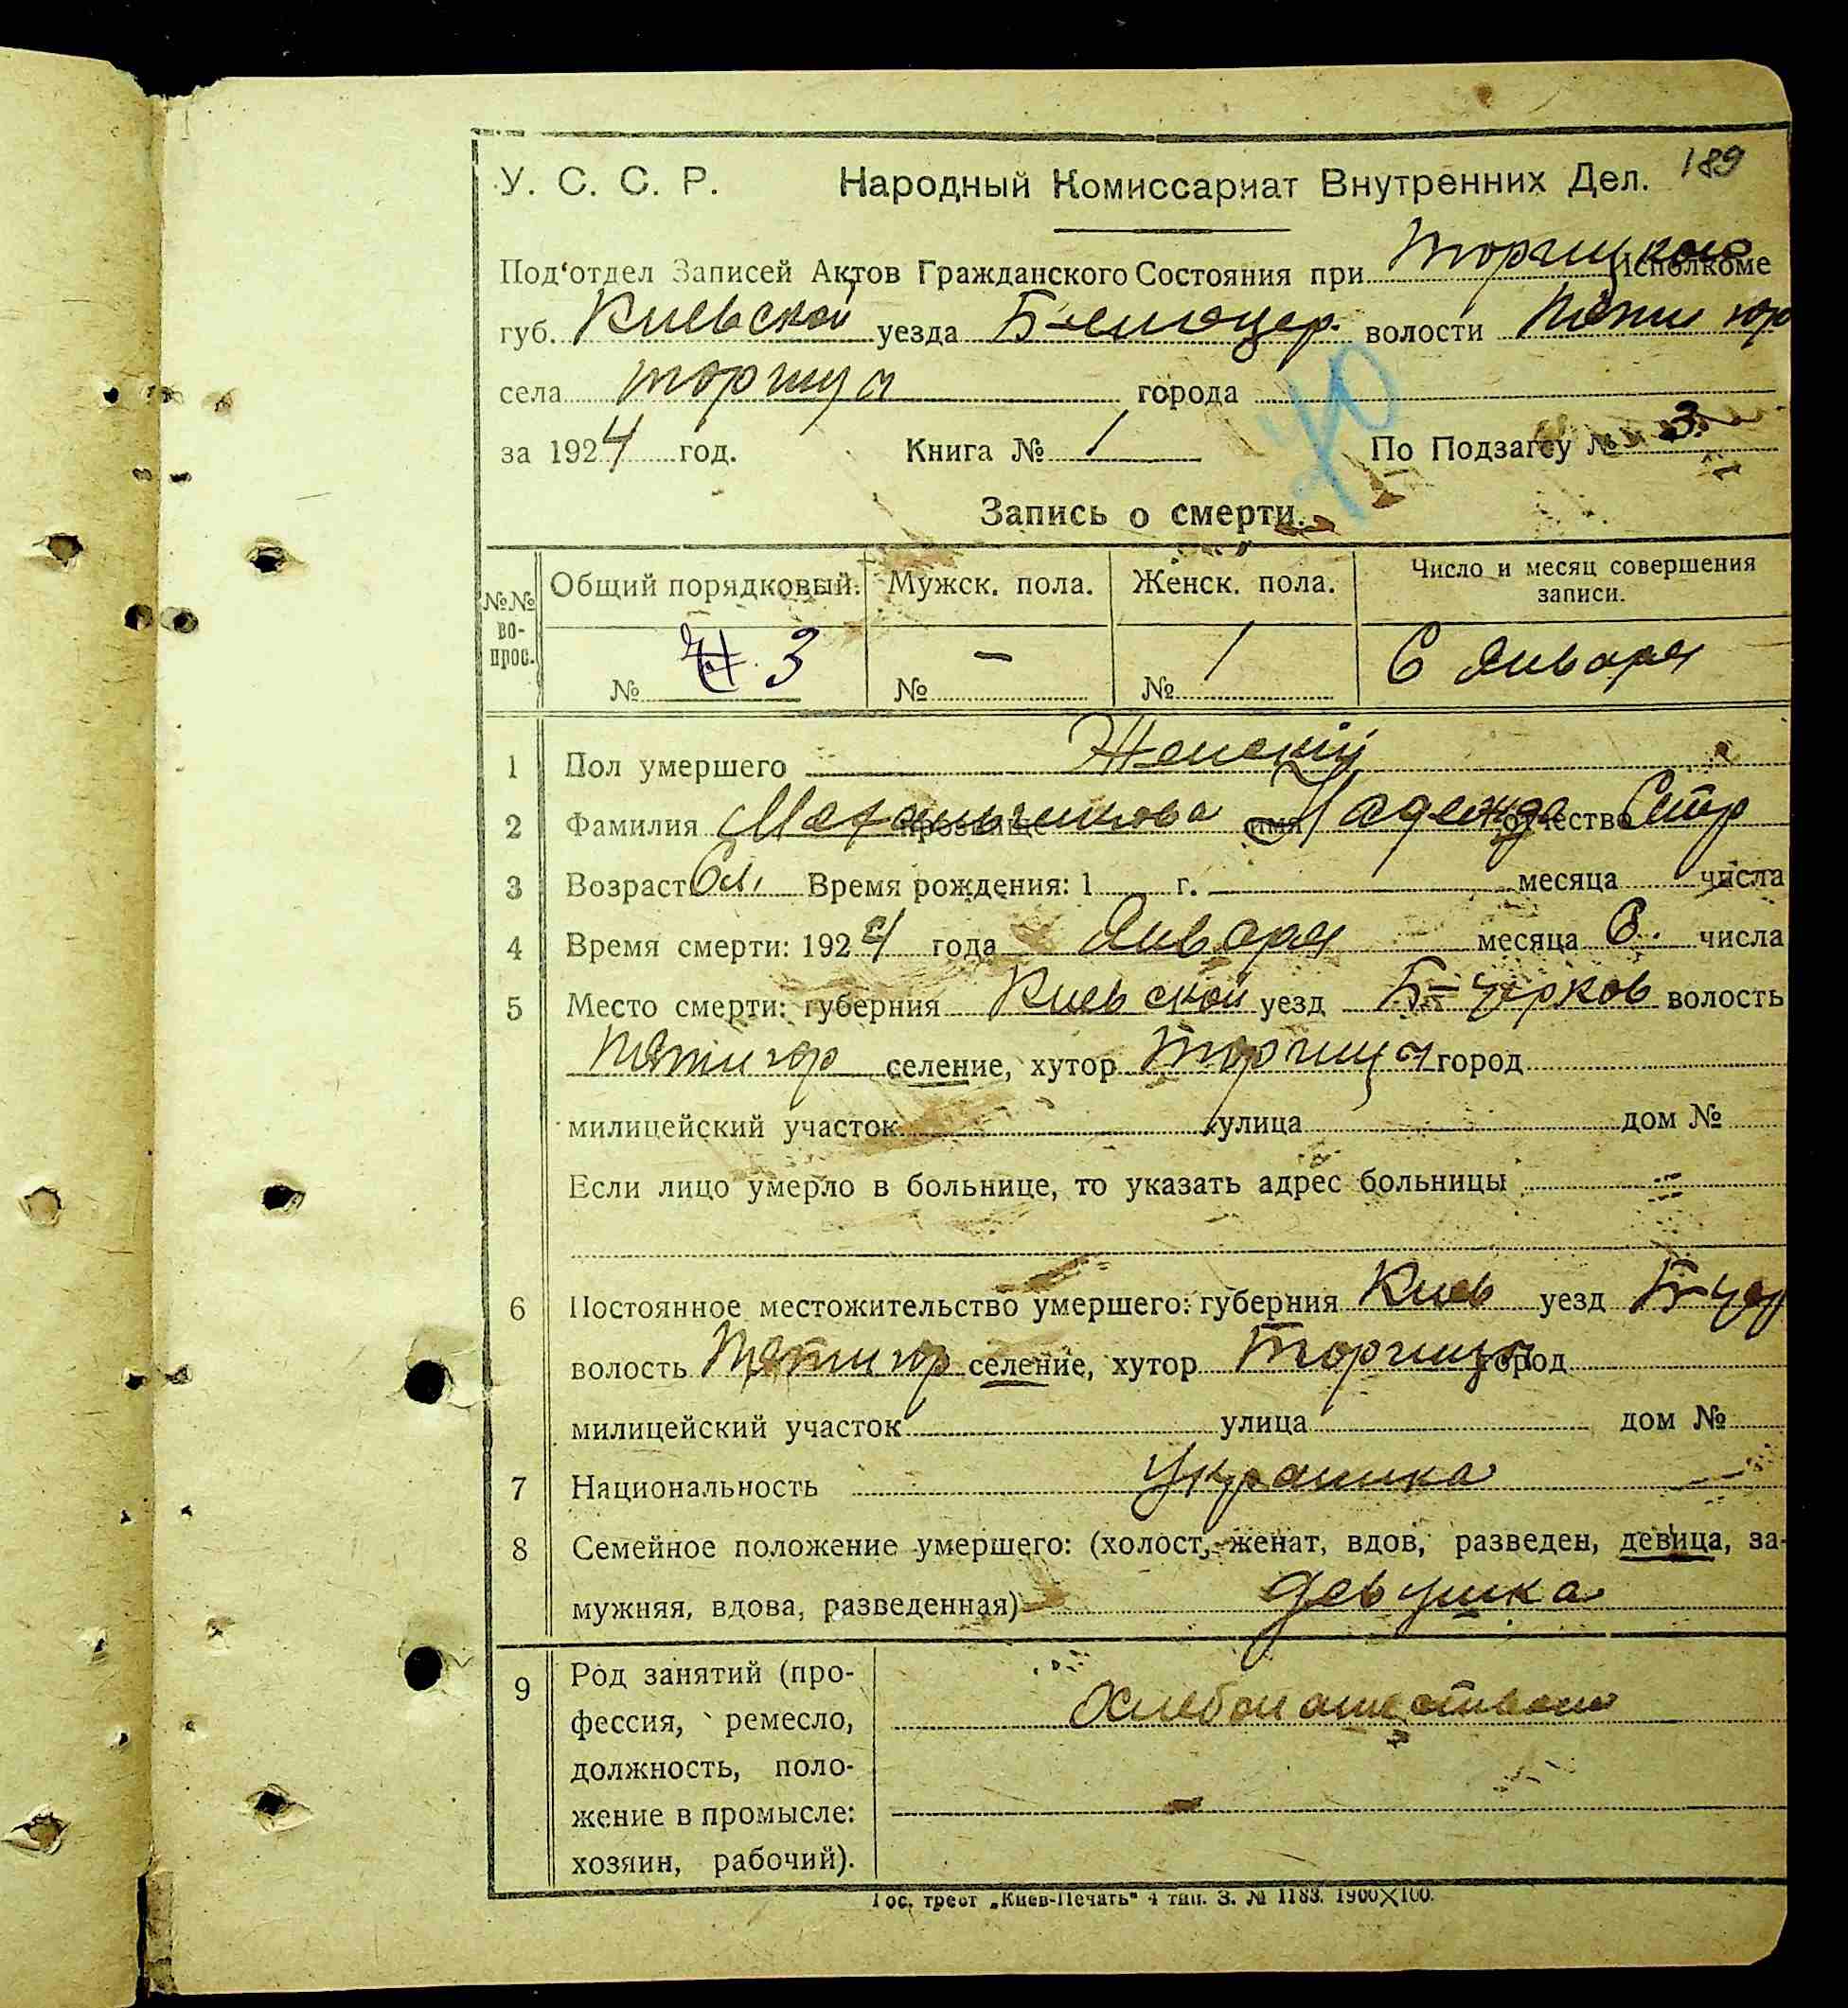 189
У. С. С. Р. Народный Комиссариат Внутренних Дел.
Под'отдел Записей Актов Гражданского Состояния при Торчицкого Исполкоме
губ. Киевской уезда Б-елоцер. волости Пятигор
села Торчица города
за 1924 год. Книга № 1 По Подзагсу № 3.
70
Запись о смерти.
№№ вопрос. Общий порядковый. Мужск. пола. Женск. пола. Число и месяц совершения записи.
№ 3 № — № 1 6 Января
1 Пол умершего Женский
2 Фамилия прозвище имя Надежда отчество
3 Возраст 6 л. Время рождения: 1 г. месяца числа
4 Время смерти: 1924 года Января месяца 6. числа
5 Место смерти: губерния Киевской уезд Б-Церков волость
Пятигор селение, хутор Торчица город
милицейский участок улица дом №
Если лицо умерло в больнице, то указать адрес больницы
6 Постоянное местожительство умершего: губерния Киев уезд Б-Цер
волость Пятигор селение, хутор Торчица город
милицейский участок улица дом №
7 Национальность Украинка
8 Семейное положение умершего: (холост, женат, вдов, разведен, девица, за-
мужняя, вдова, разведенная) девушка
9 Род занятий (про-
фессия, ремесло, Хлебопашеством
должность, поло-
жение в промысле:
хозяин, рабочий).
Гос. трест „Киев-Печать" 4 тип. З. № 1183. 1900×100.